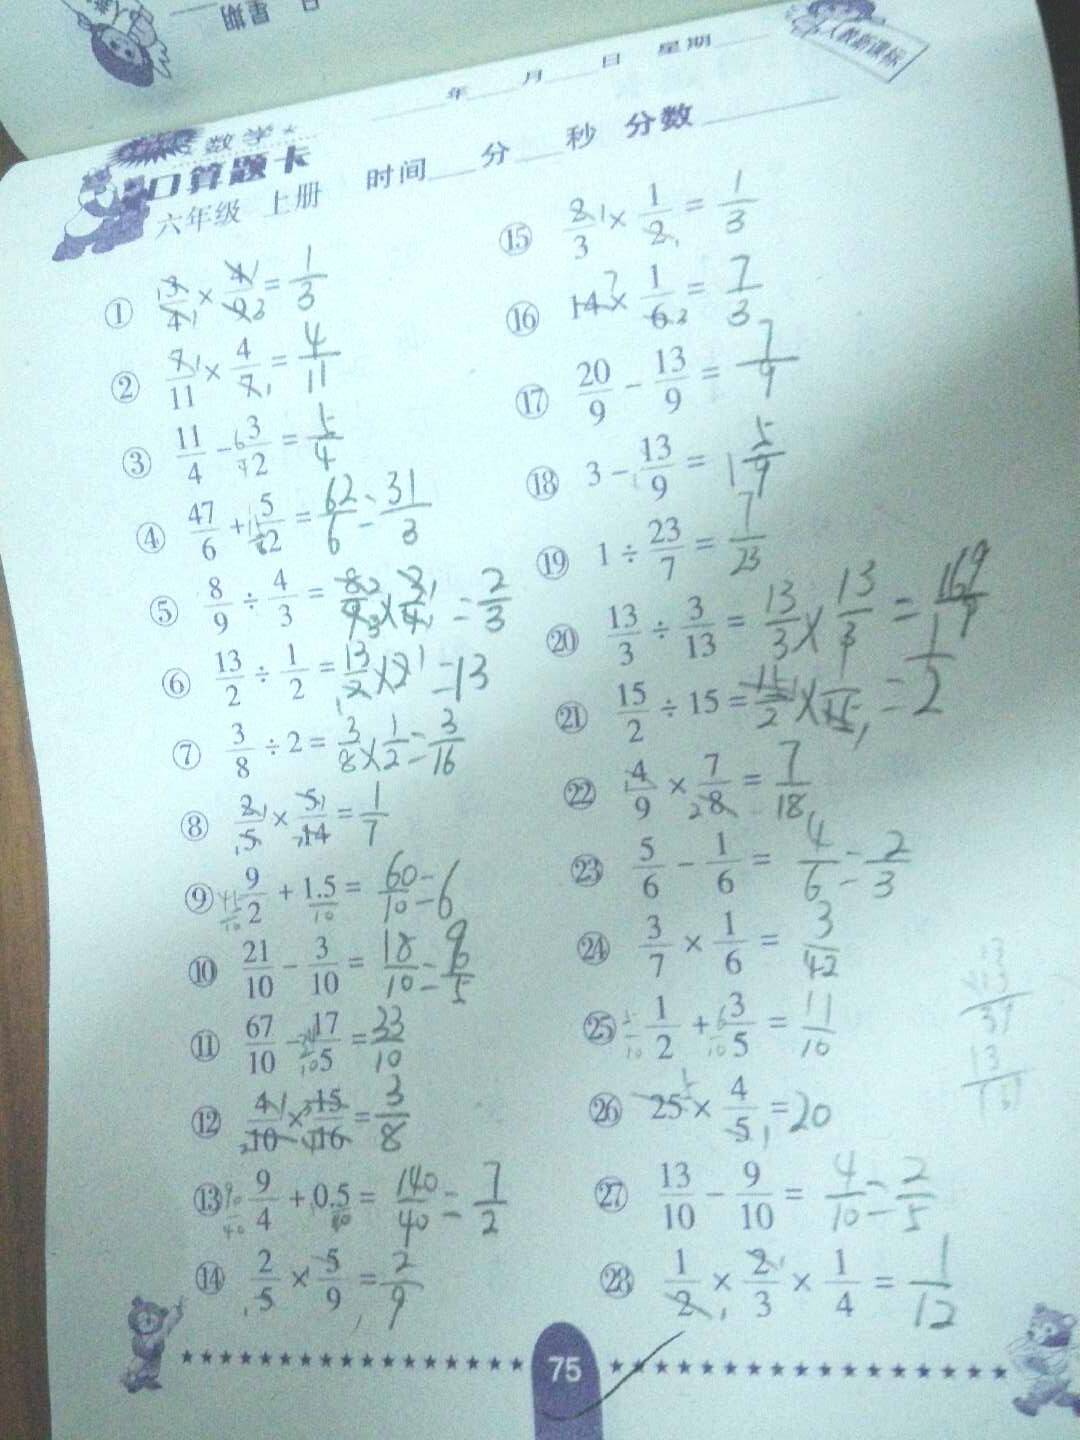 星期 日
人教新课标
年 月 日 星期
数学
口算题卡
六年级 上册 时间 分 秒 分数
① 3/4 × 4/9 = 1/3
② 7/11 × 4/7 = 4/11
③ 11/4 - 3/2 = 5/4
④ 47/6 + 5/2 = 62/6 = 31/3
⑤ 8/9 ÷ 4/3 = 8/9 × 3/4 = 2/3
⑥ 13/2 ÷ 1/2 = 13/2 × 2 = 13
⑦ 3/8 ÷ 2 = 3/8 × 1/2 = 3/16
⑧ 2/5 × 5/14 = 1/7
⑨ 9/2 + 1.5 = 60/10 = 6
⑩ 21/10 - 3/10 = 18/10 = 9/5
⑪ 67/10 - 17/5 = 33/10
⑫ 4/10 × 15/16 = 3/8
⑬ 9/4 + 0.5 = 140/40 = 7/2
⑭ 2/5 × 5/9 = 2/9
⑮ 2/3 × 1/2 = 1/3
⑯ 14 × 1/6 = 7/3
⑰ 20/9 - 13/9 = 7/9
⑱ 3 - 13/9 = 1 5/9
⑲ 1 ÷ 23/7 = 7/23
⑳ 13/3 ÷ 3/13 = 13/3 × 13/3 = 169/9
㉑ 15/2 ÷ 15 = 15/2 × 1/15 = 1/2
㉒ 4/9 × 7/8 = 7/18
㉓ 5/6 - 1/6 = 4/6 = 2/3
㉔ 3/7 × 1/6 = 3/42
㉕ 1/2 + 3/5 = 11/10
㉖ 25 × 4/5 = 20
㉗ 13/10 - 9/10 = 4/10 = 2/5
㉘ 1/2 × 2/3 × 1/4 = 1/12
75